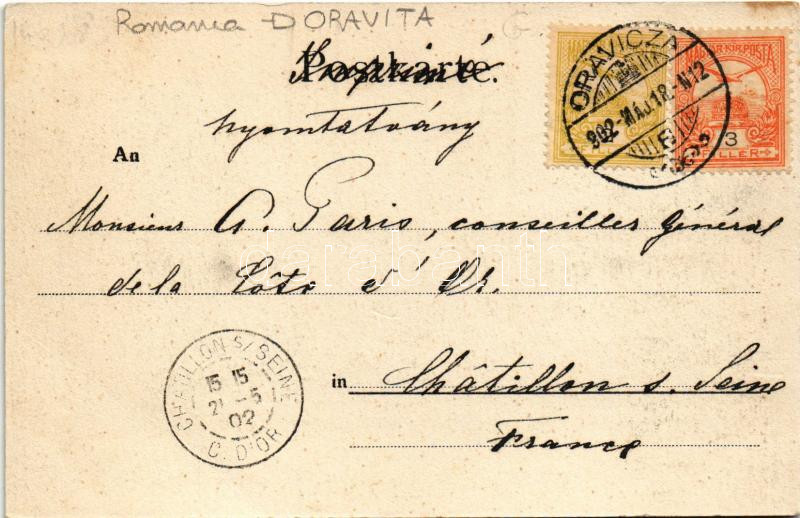 Romania - DORAVITA
Postkarte.
Imprimé
nyomtatvány
ORAVICZA
902-MÁJ.18.-N12
MAGYAR KIR. POSTA
3
FILLER
An
Monsieur A. Paris, conseiller général
de la Côte d'Or.
in Châtillon s. Seine
France
CHATILLON S/SEINE
15 15
21 -5
02
C. D'OR
darabanth